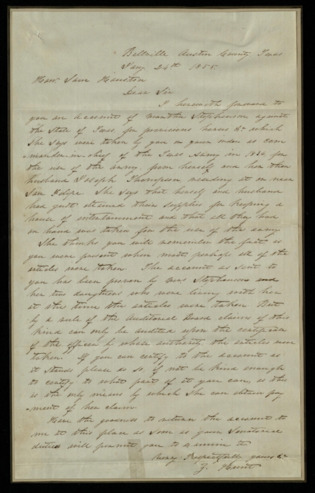 Bellville Austin County Texas
Jany 26th 1855
Hon. Sam Houston
Dear Sir
I herewith forward to
you an account of Stephenson against
the State of Texas for provisions horses &c which
She says were taken by you or your order as com
mander in chief of the Texas Army in 1836 for
the use of the army from herself and her then
husband Joseph Thompson residing at or near
San Felipe She says that herself and husband
had just obtained their supplies for keeping a
house of entertainment and that all they had
on hand was taken for the use of the army
She thinks you will remember the facts as
you were present when most perhaps all of the
articles were taken The account as sent to
you has been proven by Mrs Stephenson and
her two daughters who were living with her
at the time the articles were taken But
by a rule of the Auditorial Board claims of this
kind can only be audited upon the certificate
of the officer by whose authority the articles were
taken If you can certify to the account as
it stands please do so, if not be kind enough
to certify to what part of it you can, as this
is the only means by which she can obtain pay
ment of her claim
Have the goodness to return the account to
me at this place as soon as your Senatorial
duties will permit you to examine it
Very Respectfully yours &c
Z. Hunt